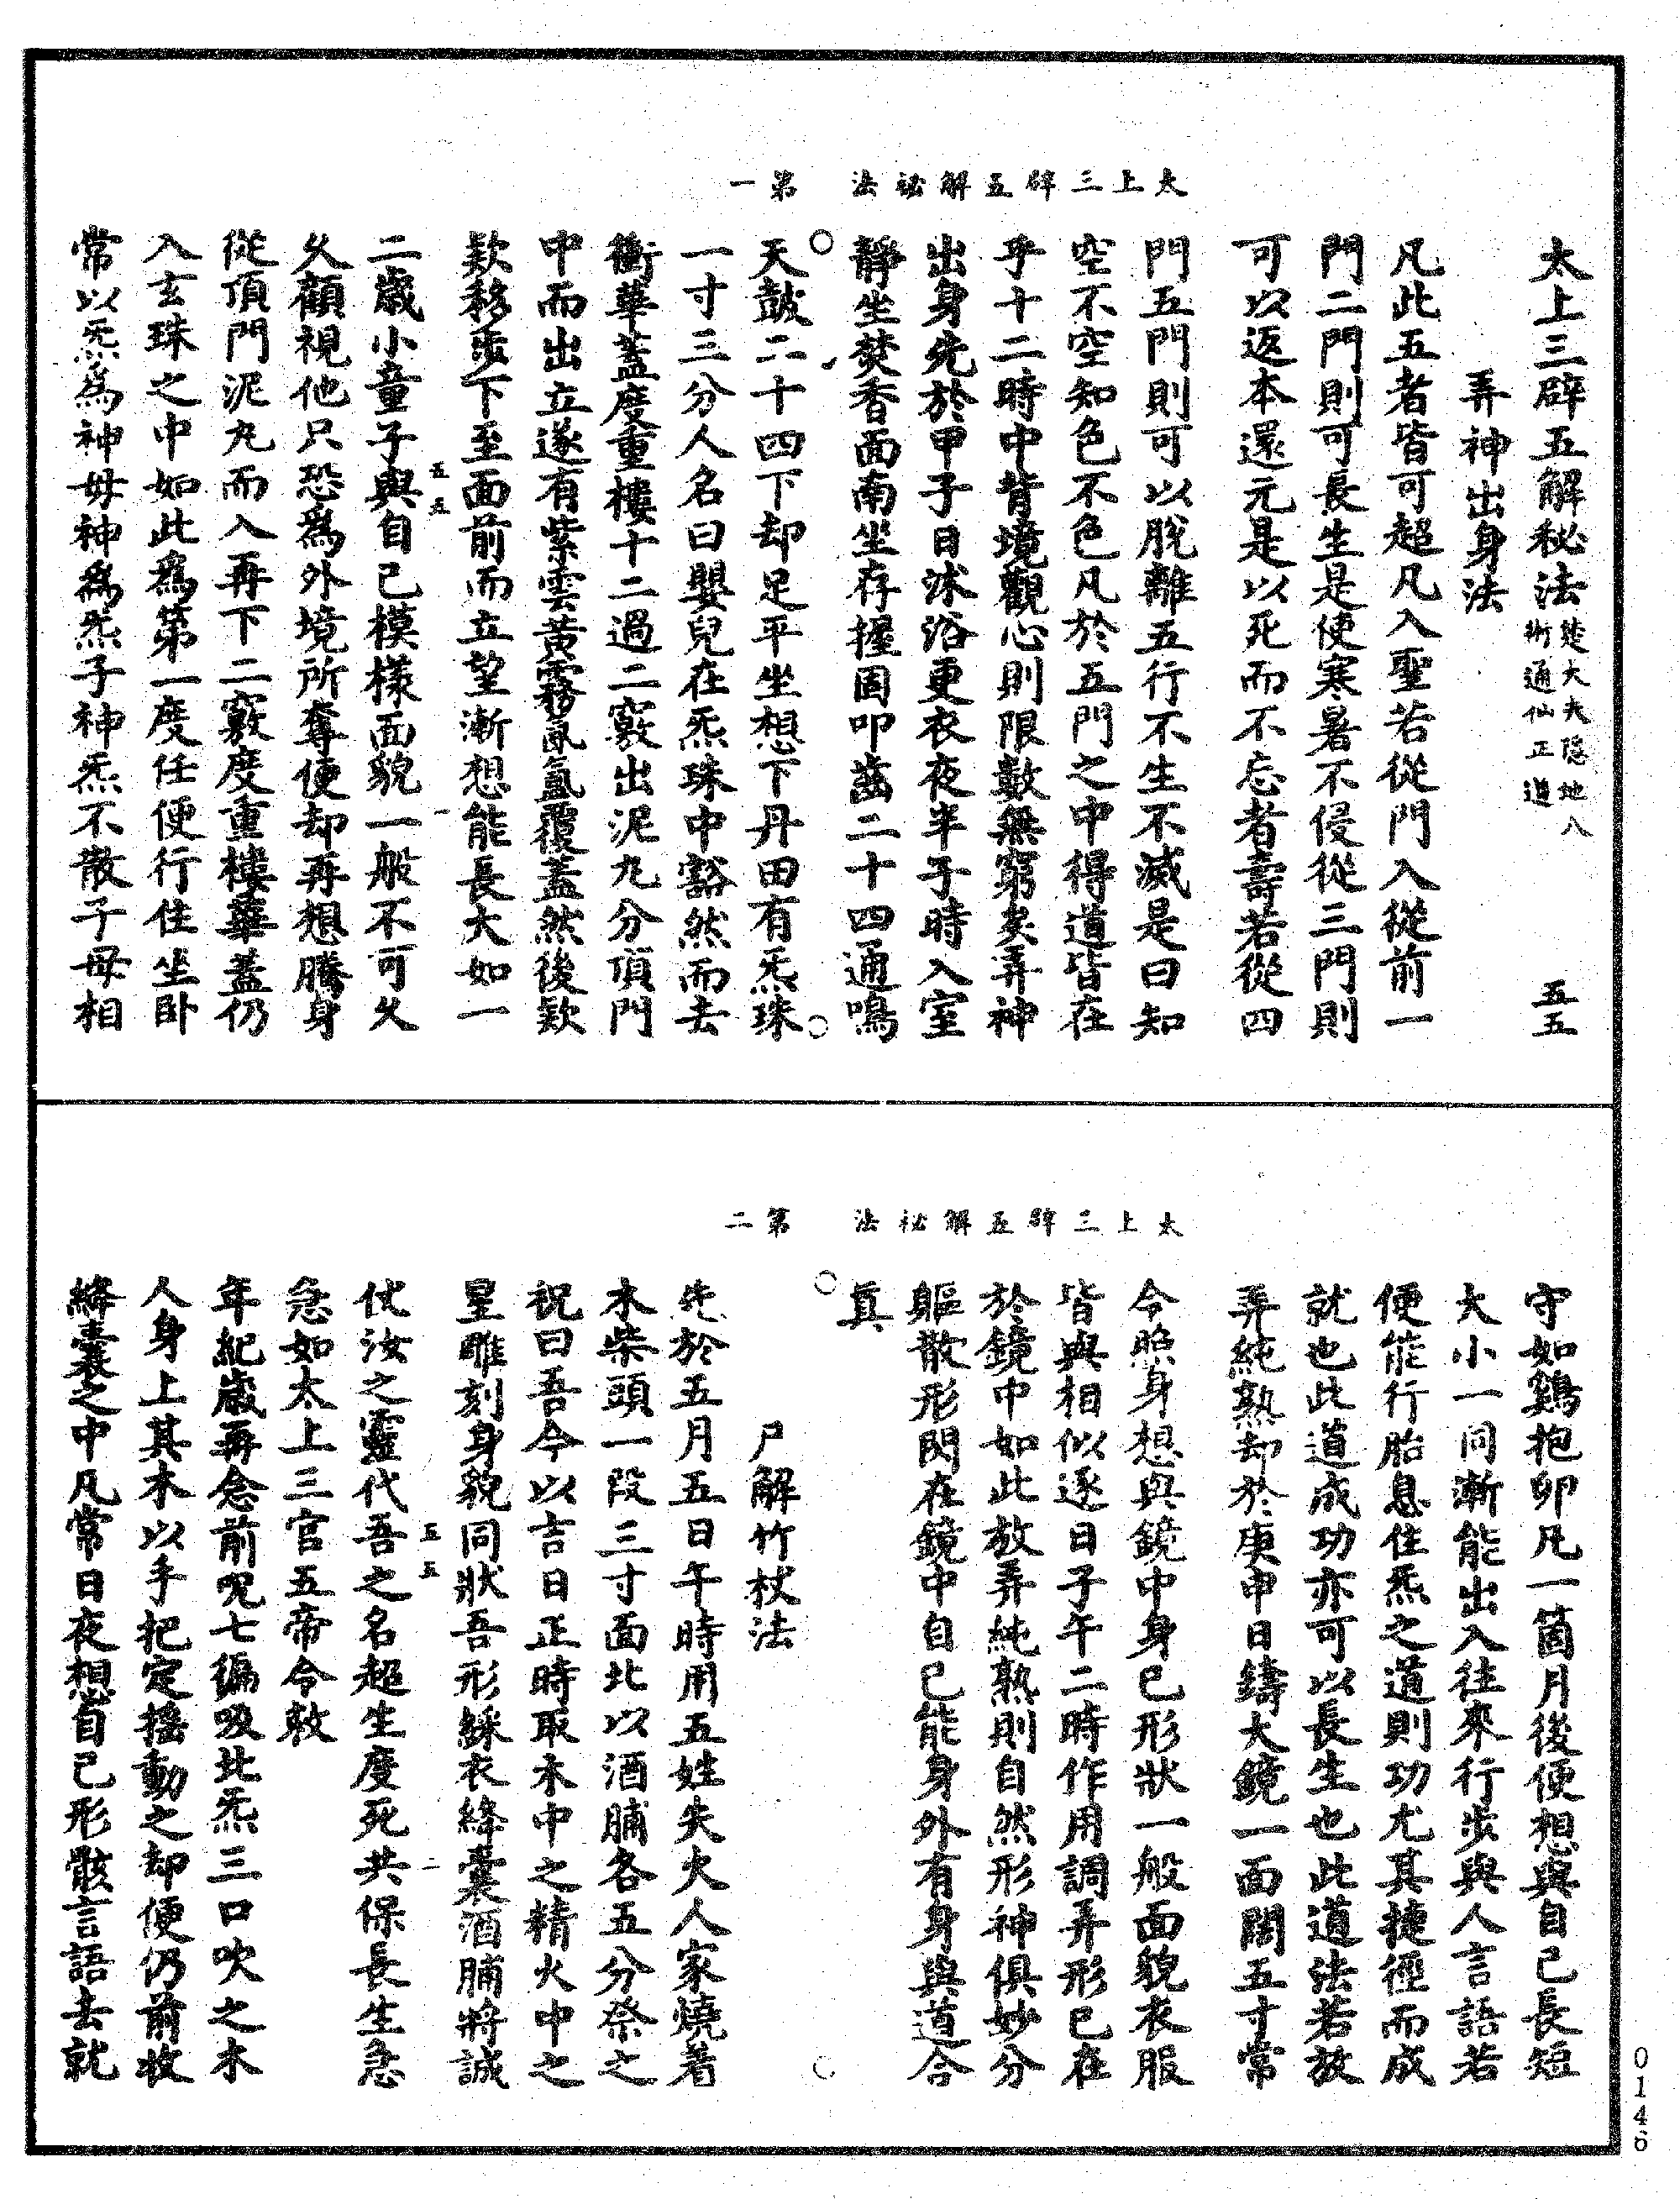 太上三辟五解祕法　第一
太上三辟五解秘法楚大夫隱地八術通仙正道　五五
弄神出身法
凡此五者皆可超凡入聖若從門入從前一
門二門則可長生是使寒暑不侵從三門則
可以返本還元是以死而不忘者壽若從四
門五門則可以脫離五行不生不滅是曰知
空不空知色不色凡於五門之中得道皆在
乎十二時中背境觀心則限數無窮矣弄神
出身先於甲子日沐浴更衣夜半子時入室
靜坐焚香面南坐存握固叩齒二十四通鳴
天鼓二十四下却足平坐想下丹田有炁珠
一寸三分人名曰嬰兒在炁珠中豁然而去
衝華蓋度重樓十二過二竅出泥丸分頂門
中而出立遂有紫雲黃霧氤氳覆蓋然後欵
欵移步下至面前而立望漸想能長大如一
五五　一
二歲小童子與自己模樣面貌一般不可久
久顧視他只恐爲外境所奪便却再想騰身
從頂門泥丸而入再下二竅度重樓華蓋仍
入玄珠之中如此爲第一度任便行住坐卧
常以炁爲神母神爲炁子神炁不散子母相
太上三辟五解祕法　第二
守如鷄抱卵凡一箇月後便想與自己長短
大小一同漸能出入往來行步與人言語若
便能行胎息住炁之道則功尤其捷徑而成
就也此道成功亦可以長生也此道法若放
弄純熟却於庚申日鑄大鏡一面闊五寸常
令照身想與鏡中身已形狀一般面貌衣服
皆與相似逐日子午二時作用調弄形已在
於鏡中如此放弄純熟則自然形神俱妙分
軀散形閃在鏡中自已能身外有身與道合
真
尸解竹杖法
先於五月五日午時用五姓失火人家燒着
木柴頭一段三寸面北以酒脯各五分祭之
祝曰吾今以吉日正時取木中之精火中之
星雕刻身貌同狀吾形綵衣絳囊酒脯將誠
五五　二
仗汝之靈代吾之名超生度死共保長生急
急如太上三官五帝令敕
年紀歲再念前呪七徧吸北炁三口吹之木
人身上其木以手把定搖動之却便仍前收
絳囊之中凡常日夜想自己形骸言語去就
0146